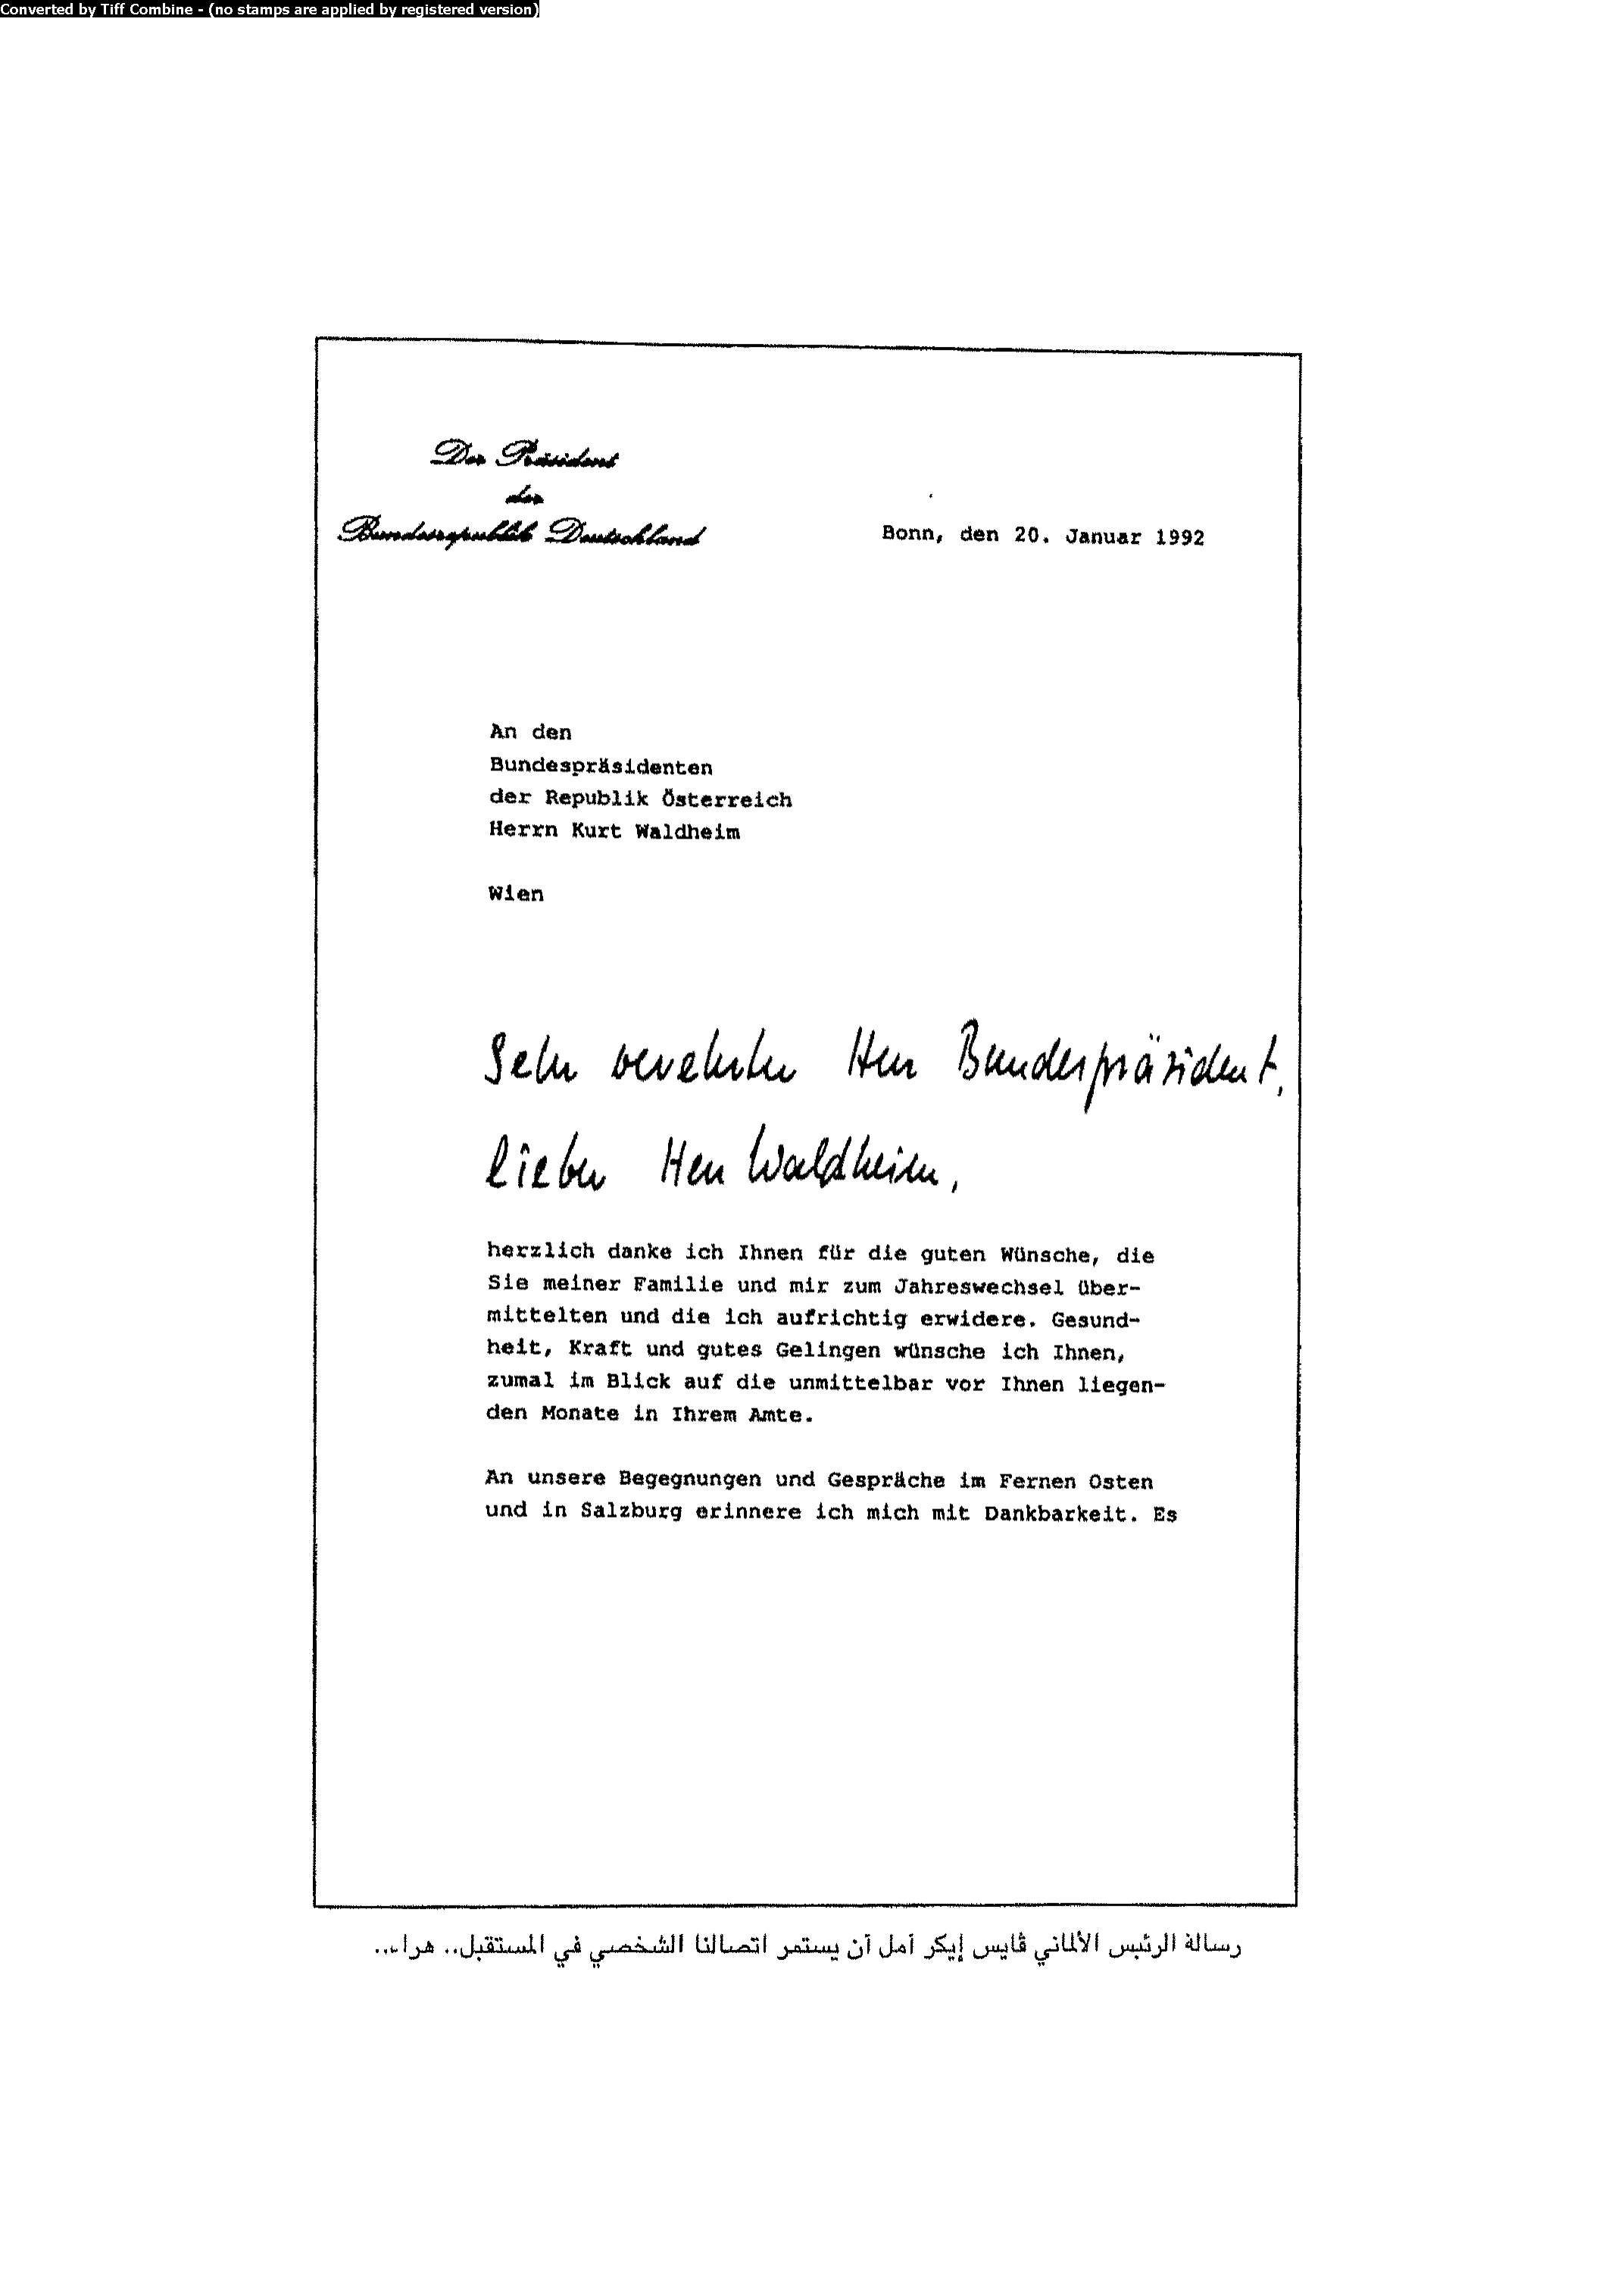 Converted by Tiff Combine - (no stamps are applied by registered version)
Der Präsident
der
Bundesrepublik Deutschland
Bonn, den 20. Januar 1992
An den
Bundespräsidenten
der Republik Österreich
Herrn Kurt Waldheim
Wien
Sehr verehrter Herr Bundespräsident,
lieber Herr Waldheim,
herzlich danke ich Ihnen für die guten Wünsche, die
Sie meiner Familie und mir zum Jahreswechsel über-
mittelten und die ich aufrichtig erwidere. Gesund-
heit, Kraft und gutes Gelingen wünsche ich Ihnen,
zumal im Blick auf die unmittelbar vor Ihnen liegen-
den Monate in Ihrem Amte.
An unsere Begegnungen und Gespräche im Fernen Osten
und in Salzburg erinnere ich mich mit Dankbarkeit. Es
رسالة الرئيس الألماني ڤايس إيكر آمل أن يستمر اتصالنا الشخصي في المستقبل.. هراء..